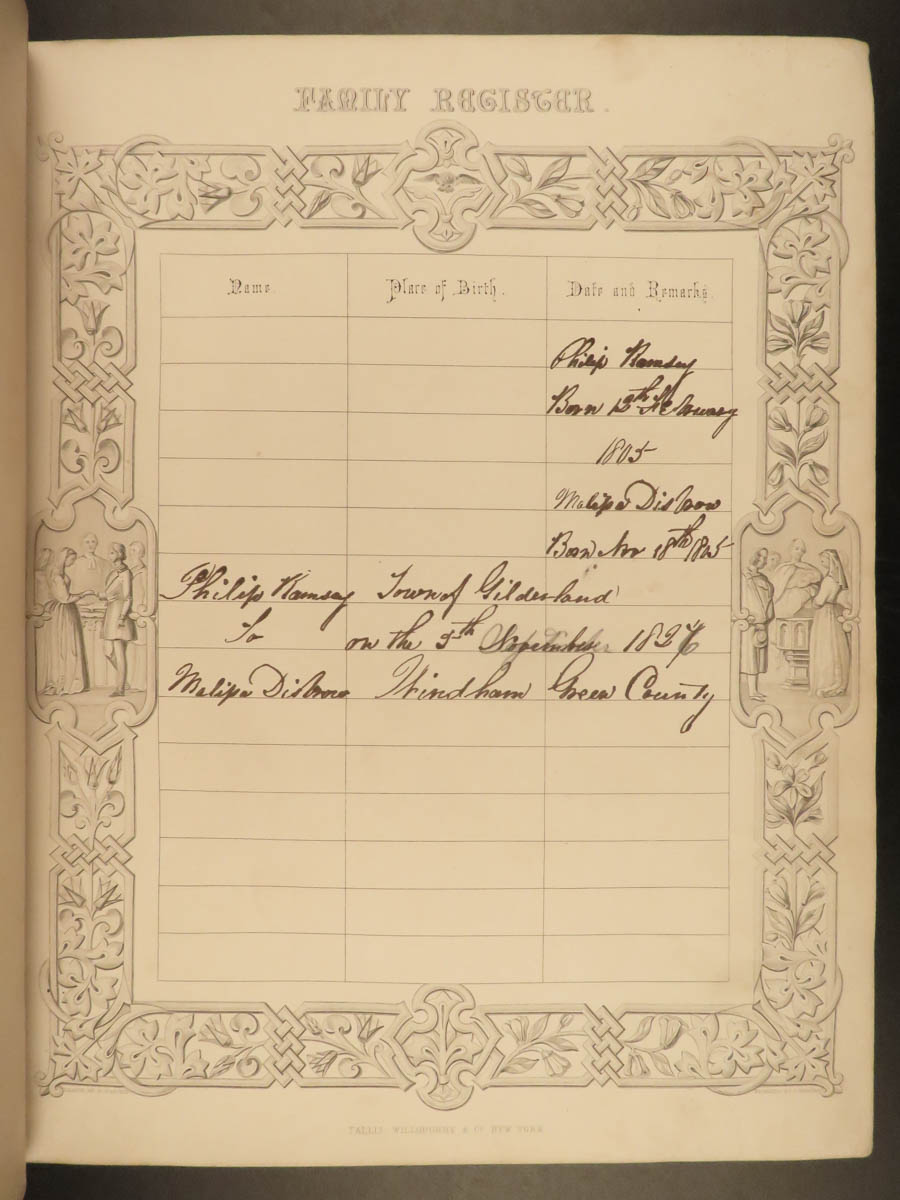 FAMILY REGISTER.
Name. Place of Birth. Date and Remarks.
Philip Ramsey
Born 12th February
1805
Malissa Disbrow
Born Nov 18th 1805
Philip Ramsay Town of Gilderland
To on the 5th 182
Malissa Disbrow Windham Green County
TALLIS WILLOUGHBY & Co NEW YORK